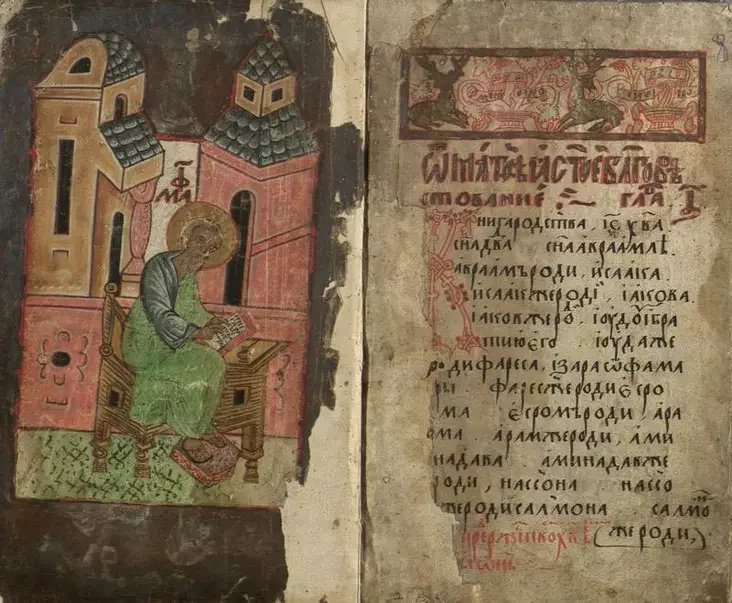 МАѲ
Ѿ МАТѲЕА СТОЕ БЛАГОВѢ
СТОВАНИЕ . ГЛАВА
Книга родства , ıс҃ х҃ва
сн҃а двд҃ва сн҃а авраамлѣ .
авраамъ роди , исаака .
исаак же роді , іакова .
іаков же ро . іоуду і бра
тию его . іоуда же
роди фареса , і зара ѿ фама
ры фарес же роди есро
ма . есромъ роди , ара
ама . арам же роди , ами
надава . аминадав же
роди , нассона . нассо
же роди салмона . салмо
же роди ,